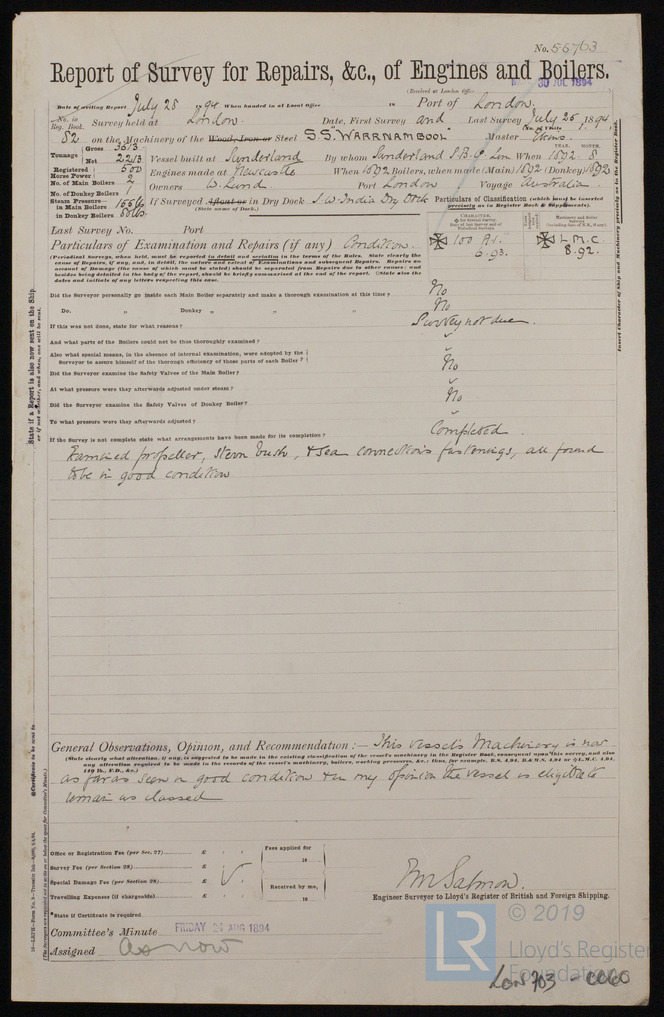 No. 56703
Report of Survey for Repairs, &c., of Engines and Boilers.
(Received at London Office 30 JUL 1894
Date of writing Report July 28 1894 When handed in at Local Office 18 Port of London.
No. in Reg. Book. Survey held at London. Date, First Survey and Last Survey July 25, 1894
(No. of Visits
82 on the Machinery of the Wood, Iron or Steel S.S. "WARRNAMBOOL" Master
YEAR. MONTH.
Tonnage Gross 3513 Net 2213 Vessel built at Sunderland By whom Sunderland S.B. Co. Lim When 1892 8
Registered Horse Power 500 Engines made at Newcastle When 1892 Boilers, when made (Main) 1892 (Donkey) 1892
No. of Main Boilers 2 Owners W. Lund. Port London Voyage Australian.
No. of Donkey Boilers 1
Steam Pressure in Main Boilers 155 lbs If Surveyed Afloat or in Dry Dock S.W. India Dry Dock
in Donkey Boilers
(State name of Dock.)
Particulars of Classification (which must be inserted precisely as in Register Book & Supplements).
Last Survey No. Port
CHARACTER.
100 A1.
6.93.
Machinery and Boiler Surveys
L.M.C.
8.92.
Particulars of Examination and Repairs (if any) Condition.
(Periodical Surveys, when held, must be reported in detail and seriatim in the terms of the Rules. State clearly the
cause of Repairs, if any, and, in detail, the nature and extent of Examinations and subsequent Repairs. Repairs on
account of Damage (the cause of which must be stated) should be separated from Repairs due to other causes; and
besides being detailed in the body of the report, should be briefly summarised at the end of the report. State also the
dates and initials of any letters respecting this case.
Did the Surveyor personally go inside each Main Boiler separately and make a thorough examination at this time? No
Do. " Donkey " " " No
If this was not done, state for what reasons? Survey not due.
And what parts of the Boilers could not be thus thoroughly examined?
Also what special means, in the absence of internal examination, were adopted by the
Surveyor to assure himself of the thorough efficiency of those parts of each Boiler?
Did the Surveyor examine the Safety Valves of the Main Boiler? No
At what pressure were they afterwards adjusted under steam?
Did the Surveyor examine the Safety Valves of Donkey Boiler? No
To what pressure were they afterwards adjusted?
If the Survey is not complete state what arrangements have been made for its completion? Completed.
Examined propeller, stern bush, & sea connections fastenings, all found
to be in good condition
General Observations, Opinion, and Recommendation:— This vessel's Machinery is now
(State clearly what alteration, if any, is suggested to be made in the existing classification of the vessel's machinery in the Register Book, consequent upon this survey, and also
any alteration required to be made in the records of the vessel's machinery, boilers, working pressures, &c.: thus, for example, B.S. 4,94, B.&M.S. 4,94 or L.M.C. 4,94,
140 lb., F.D., &c.)
as far as seen in good condition & in my opinion the vessel is eligible to
remain as classed
Office or Registration Fee (per Sec. 27) £
Survey Fee (per Section 28) £
Special Damage Fee (per Section 28) £
Travelling Expenses (if chargeable) £
Fees applied for
18
Received by me,
18
State if Certificate is required
Salmon.
Engineer Surveyor to Lloyd's Register of British and Foreign Shipping.
Committee's Minute FRIDAY 24 AUG 1894
Assigned as now
State if a Report is also now sent on the Ship.
Insert Character of Ship and Machinery precisely as in the Register Book.
Certificate to be sent to
LR
© 2019
Lloyd's Register
Foundation
LON 703 - 0060